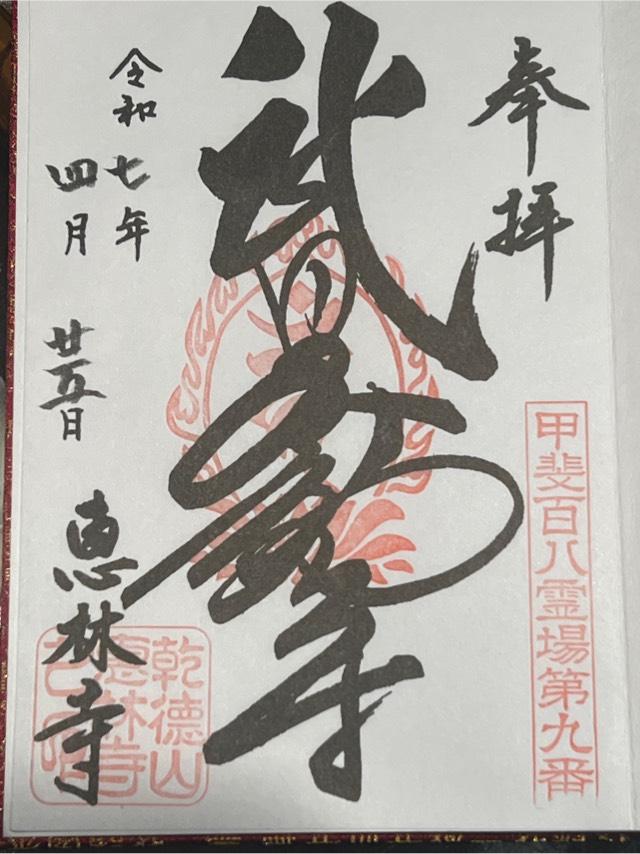 奉拝
甲斐百八霊場第九番
武田不動尊
令和七年
四月廿五日
恵林寺
乾徳山
恵林寺